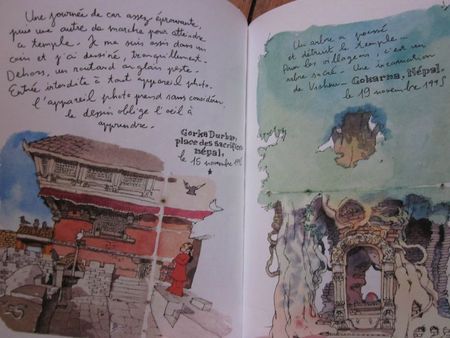 Une journée de car assez éprouvante,
puis une autre de marche pour atteindre
ce temple. Je me suis assis dans un
coin et j'ai dessiné, tranquillement.
Dehors, un routard anglais peste.
Entrée interdite à tout appareil photo.
l'appareil photo prend sans considérer
le dessin oblige l'œil à
apprendre.
Gorka Durbar,
place des sacrifices
népal,
le 15 novembre
Un arbre a poussé
et détruit le temple.
Pour les villageois, c'est un
arbre sacré. Une incarnation
de Vishnu. Gokarna, Népal,
le 19 novembre 1995